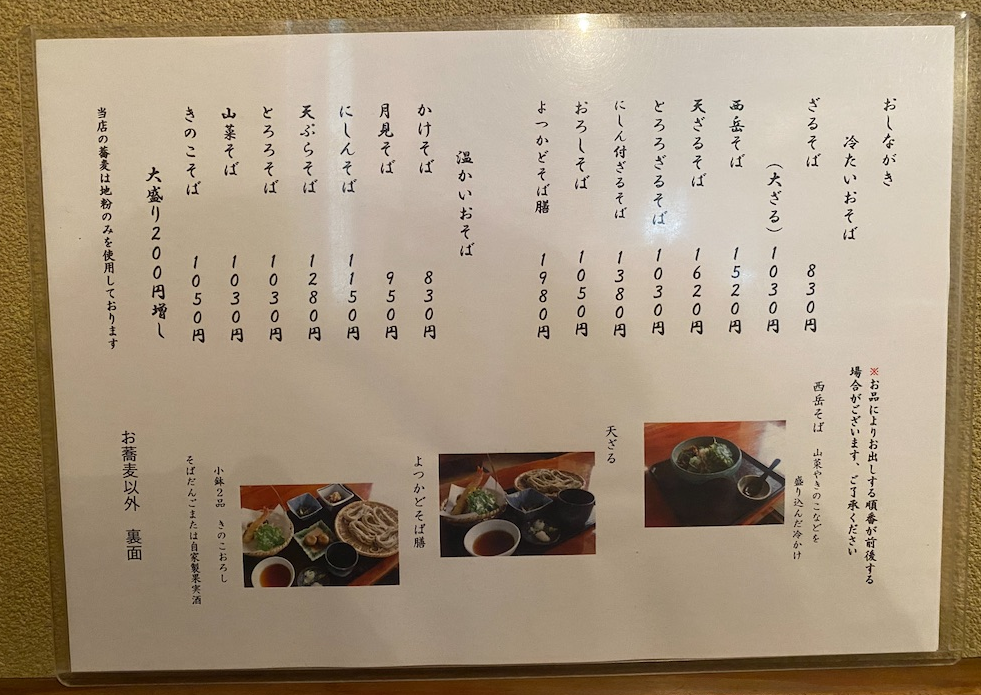 おしながき
冷たいおそば
ざるそば 830円
(大ざる) 1030円
西岳そば 1520円
天ざるそば 1620円
とろろざるそば 1030円
にしん付ざるそば 1380円
おろしそば 1050円
よつかどそば膳 1980円
温かいおそば
かけそば 830円
月見そば 950円
にしんそば 1150円
天ぷらそば 1280円
とろろそば 1030円
山菜そば 1030円
きのこそば 1050円
大盛り200円増し
当店の蕎麦は地粉のみを使用しております
※お品によりお出しする順番が前後する
場合がございます、ご了承ください
西岳そば 山菜やきのこなどを
盛り込んだ冷かけ
天ざる
よつかどそば膳
小鉢2品 きのこおろし
そばだんごまたは自家製果実酒
お蕎麦以外 裏面